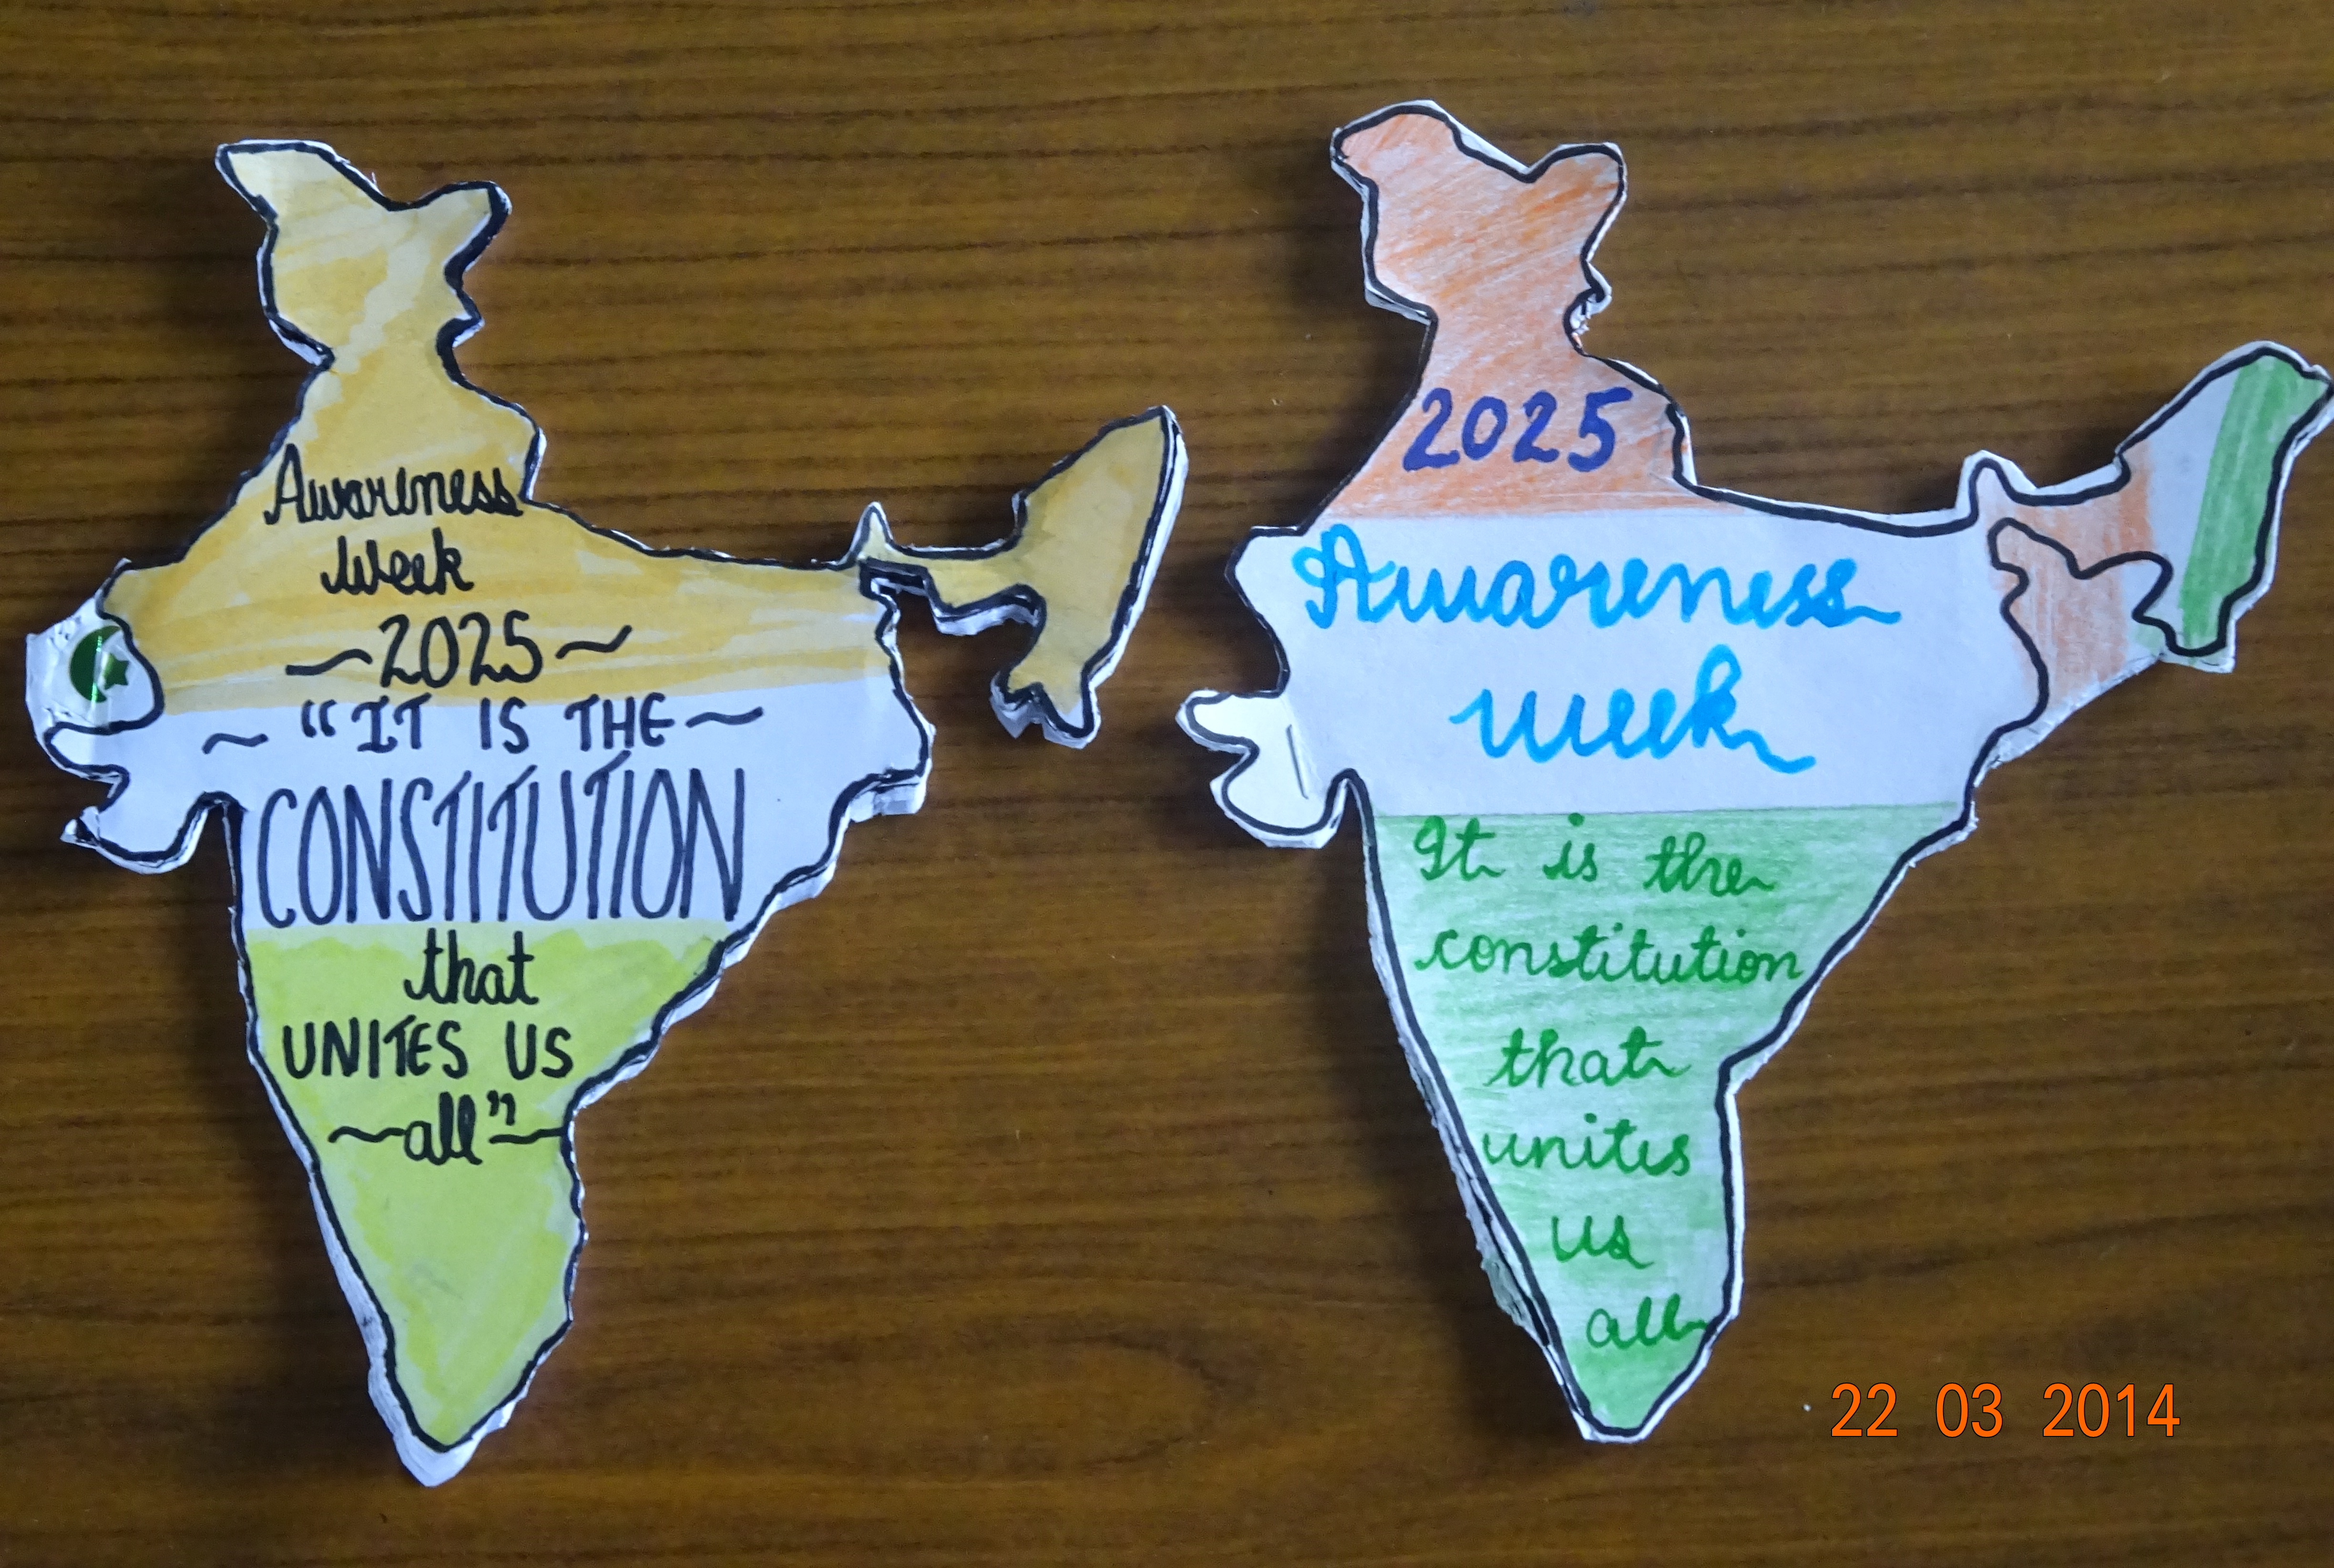 Awareness
Week
~2025~
~ "IT IS THE~
CONSTITUTION
that
UNITES US
~all"~
2025
Awareness
week
It is the
constitution
that
unites
us
all
22 03 2014